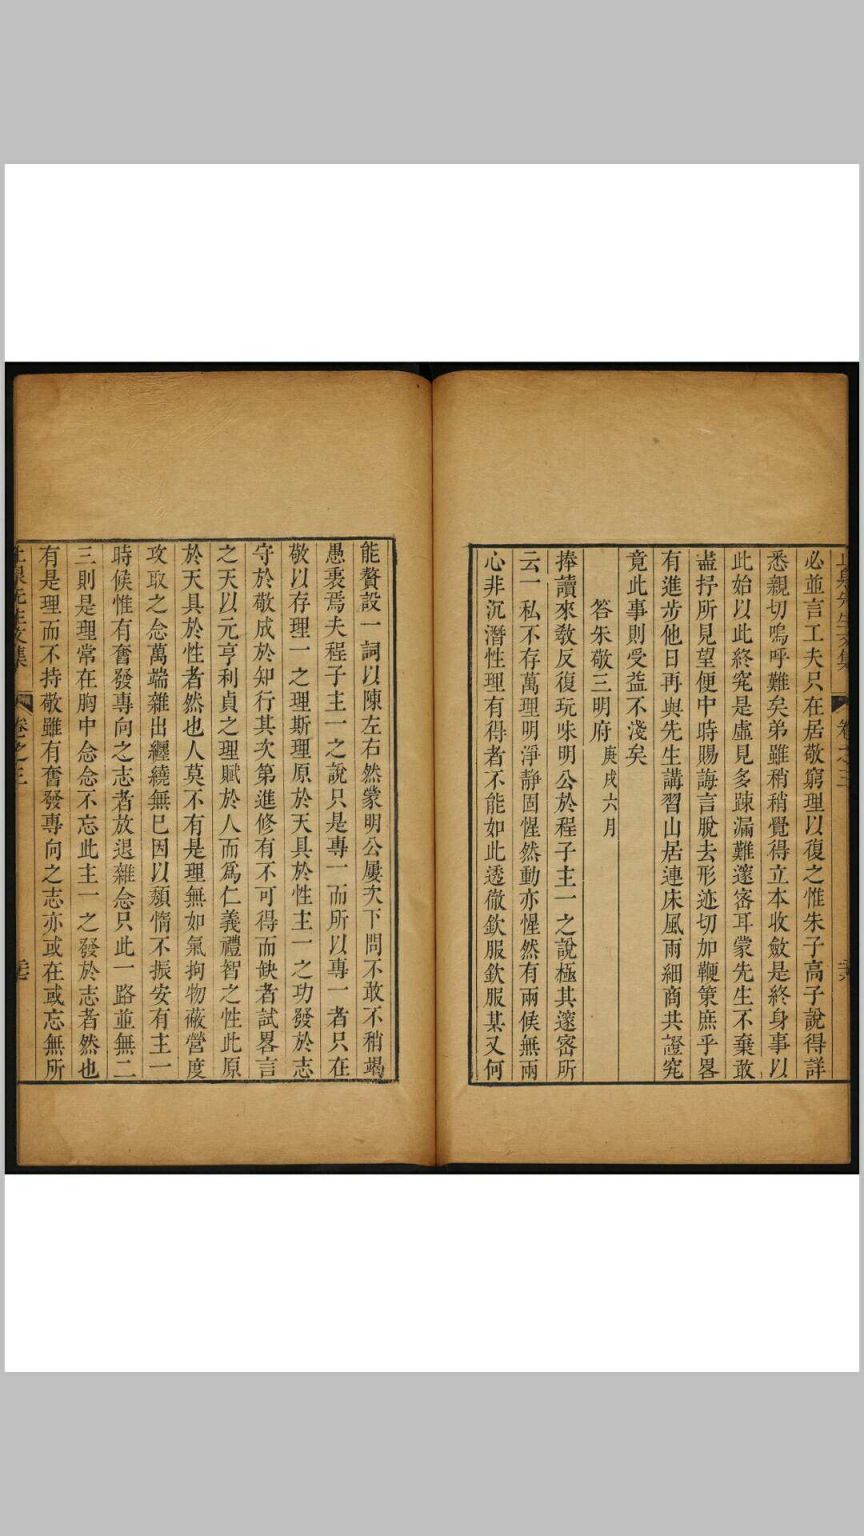 必並言工夫只在居敬窮理以復之惟朱子高子說得詳
悉親切嗚呼難矣弟雖稍稍覺得立本收斂是終身事以
此始以此終究是虛見多踈漏難邃宻耳蒙先生不棄敢
盡抒所見望便中時賜誨言脫去形迹切加鞭策庶乎畧
有進步他日再與先生講習山居連床風雨細商共證究
竟此事則受益不淺矣
答朱敬三明府庚戌六月
捧讀來敎反復玩味明公於程子主一之說極其邃宻所
云一私不存萬理明淨静固惺然動亦惺然有兩候無兩
心非沉潛性理有得者不能如此透徹欽服欽服某又何
能贅設一詞以陳左右然蒙明公屢次下問不敢不稍竭
愚衷焉夫程子主一之說只是專一而所以專一者只在
敬以存理一之理斯理原於天具於性主一之功發於志
守於敬成於知行其次第進修有不可得而缺者試畧言
之天以元亨利貞之理賦於人而爲仁義禮智之性此原
於天具於性者然也人莫不有是理無如氣拘物蔽營度
攻取之念萬端雜出纒繞無已因以頽惰不振安有主一
時候惟有奮發專向之志者放退雜念只此一路並無二
三則是理常在胸中念念不忘此主一之發於志者然也
有是理而不持敬雖有奮發專向之志亦或在或忘無所
止泉先生文集 卷之三